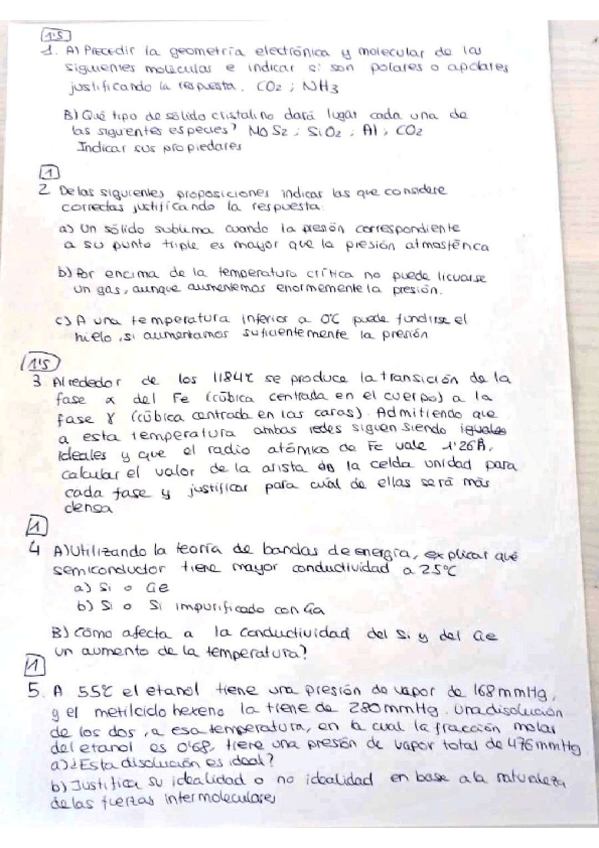 1'5
1. A) Precedir la geometría electrónica y molecular de las
siguientes moléculas e indicar si son polares o apolares
justificando la respuesta. CO2 ; NH3
B) Qué tipo de sólido cristalino dará lugar cada una de
las siguientes especies? NOS2 ; SiO2 ; Al ; CO2
Indicar sus propiedades
1
2 De las siguientes proposiciones indicar las que considere
correctas justificando la respuesta
a) Un sólido sublima cuando la presión correspondiente
a su punto triple es mayor que la presión atmosférica
b) Por encima de la temperatura crítica no puede licuarse
un gas, aunque aumentemos enormemente la presión.
c) A una temperatura inferior a 0ºC puede fundirse el
hielo, si aumentamos suficientemente la presión
1'5
3. Alrededor de los 1184ºC se produce la transición de la
fase α del Fe (cúbica centrada en el cuerpo) a la
fase γ (cúbica centrada en las caras). Admitiendo que
a esta temperatura ambas redes siguen siendo
ideales y que el radio atómico de Fe vale 1'26Å,
calcular el valor de la arista de la celda unidad para
cada fase y justificar para cuál de ellas será más
densa
1
4 A) Utilizando la teoría de bandas de energía, explicar qué
semiconductor tiene mayor conductividad a 25ºC
a) Si o Ge
b) Si o Si impurificado con Ga
B) Cómo afecta a la conductividad del Si y del Ge
un aumento de la temperatura?
1
5. A 55ºC el etanol tiene una presión de vapor de 168 mmHg,
y el metilciclo hexeno la tiene de 280 mmHg. Una disolución
de los dos, a esa temperatura, en la cual la fracción molar
del etanol es 0'68, tiene una presión de vapor total de 476 mmHg
a) ¿Esta disolución es ideal?
b) Justifica su idealidad o no idealidad en base a la naturaleza
de las fuerzas intermoleculares